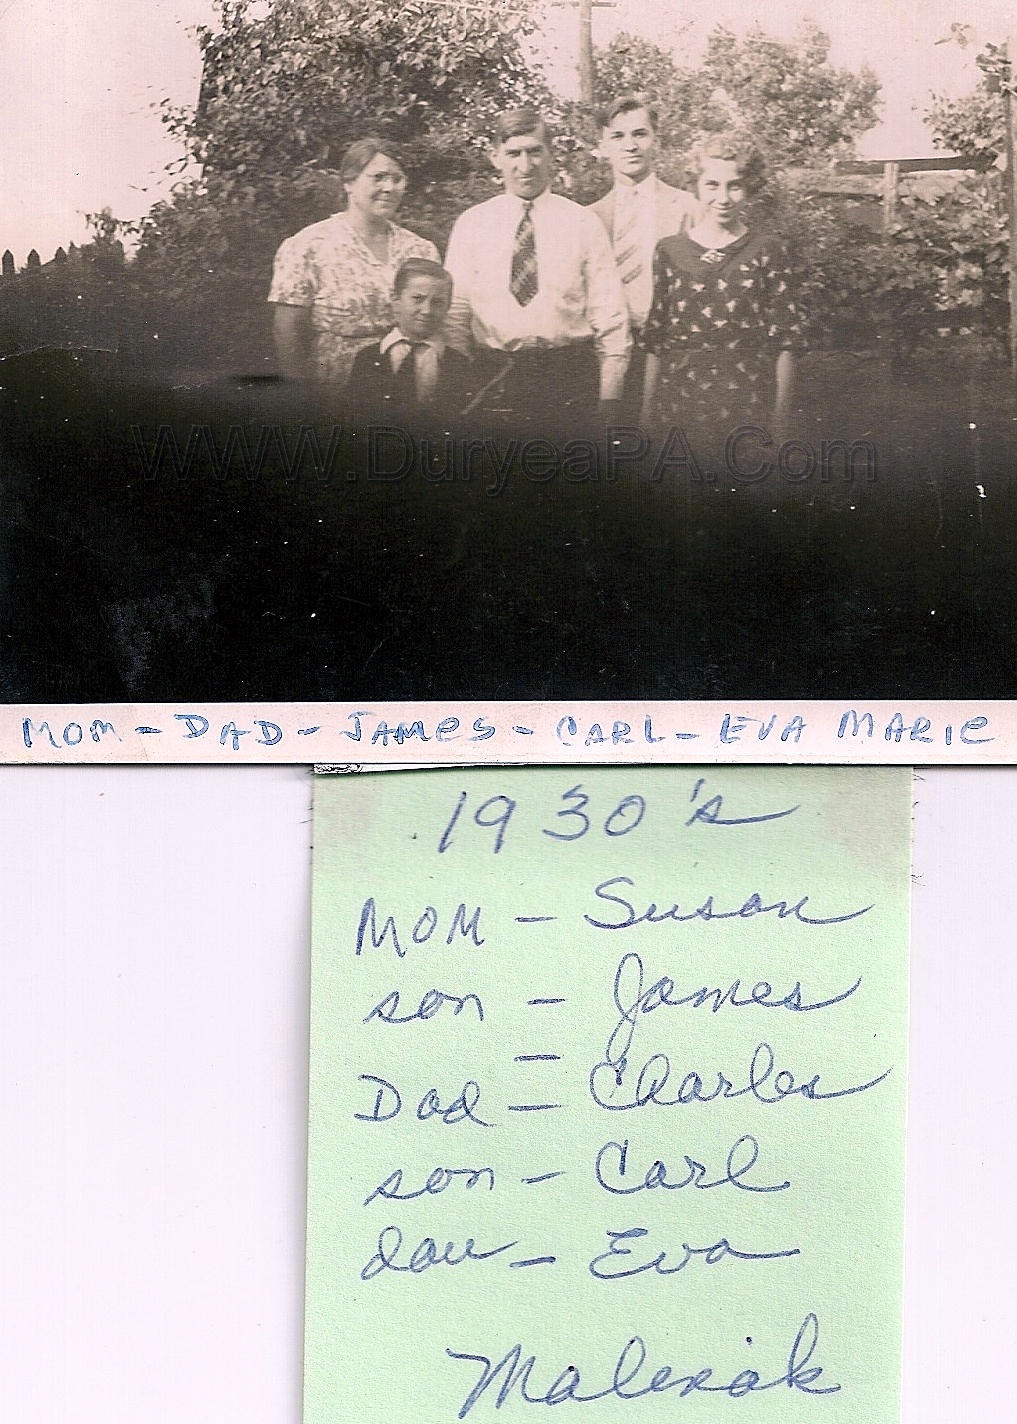 WWW.DuryeaPA.Com
MOM - DAD - JAMES - CARL - EVA MARIE
1930's
MOM - Susan
son - James
Dad - Charles
son - Carl
dau - Eva